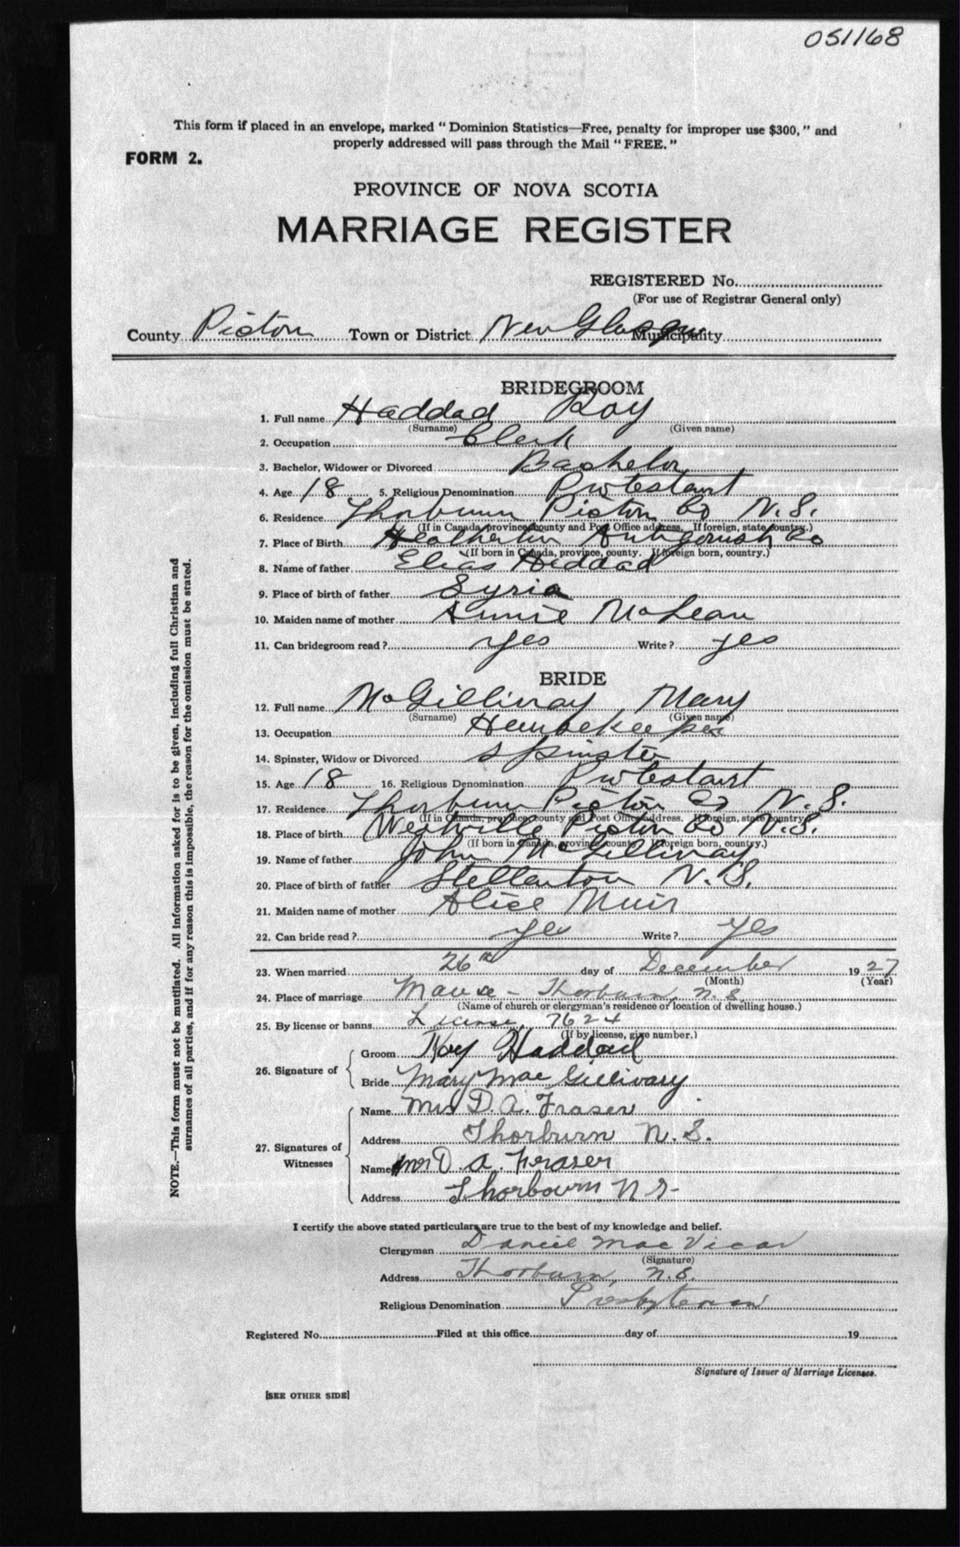 051168
This form if placed in an envelope, marked "Dominion Statistics—Free, penalty for improper use $300," and
properly addressed will pass through the Mail "FREE."
FORM 2.
PROVINCE OF NOVA SCOTIA
MARRIAGE REGISTER
REGISTERED No.
(For use of Registrar General only)
County Pictou Town or District New Glasgow Municipality
BRIDEGROOM
1. Full name Haddad Roy
(Surname) (Given name)
2. Occupation Clerk
3. Bachelor, Widower or Divorced Bachelor
4. Age 18 5. Religious Denomination Protestant
6. Residence Thorburn Pictou Co N.S.
(If in Canada, province, county and Post Office address. If foreign, state country.)
7. Place of Birth Heatherton Antigonish Co
(If born in Canada, province, county. If foreign born, country.)
8. Name of father Elias Haddad
9. Place of birth of father Syria
10. Maiden name of mother Annie McLean
11. Can bridegroom read? yes Write? yes
BRIDE
12. Full name McGillivray Mary
(Surname) (Given name)
13. Occupation Housekeeper
14. Spinster, Widow or Divorced Spinster
15. Age 18 16. Religious Denomination Protestant
17. Residence Thorburn Pictou Co N.S.
(If in Canada, province, county and Post Office address. If foreign, state country.)
18. Place of birth Westville Pictou Co N.S.
(If born in Canada, province, county. If foreign born, country.)
19. Name of father John McGillivray
20. Place of birth of father Stellarton N.S.
21. Maiden name of mother Alice Muir
22. Can bride read? yes Write? yes
23. When married 26th day of December 1927
(Month) (Year)
24. Place of marriage Manse - Thorburn, N.S.
(Name of church or clergyman's residence or location of dwelling house.)
25. By license or banns License 7624
(If by license, give number.)
26. Signature of
Groom Roy Haddad
Bride Mary Mac Gillivary
27. Signatures of Witnesses
Name Mrs D. A. Fraser
Address Thorburn N.S.
Name Mr D. A. Fraser
Address Thorbourn N S-
I certify the above stated particulars are true to the best of my knowledge and belief.
Clergyman Daniel Mac Vicar
(Signature)
Address Thorburn, N.S.
Religious Denomination Presbyterian
Registered No. Filed at this office day of 19
Signature of Issuer of Marriage Licenses.
[SEE OTHER SIDE]
NOTE.—This form must not be mutilated. All information asked for is to be given, including full Christian and
surnames of all parties, and if for any reason this is impossible, the reason for the omission must be stated.